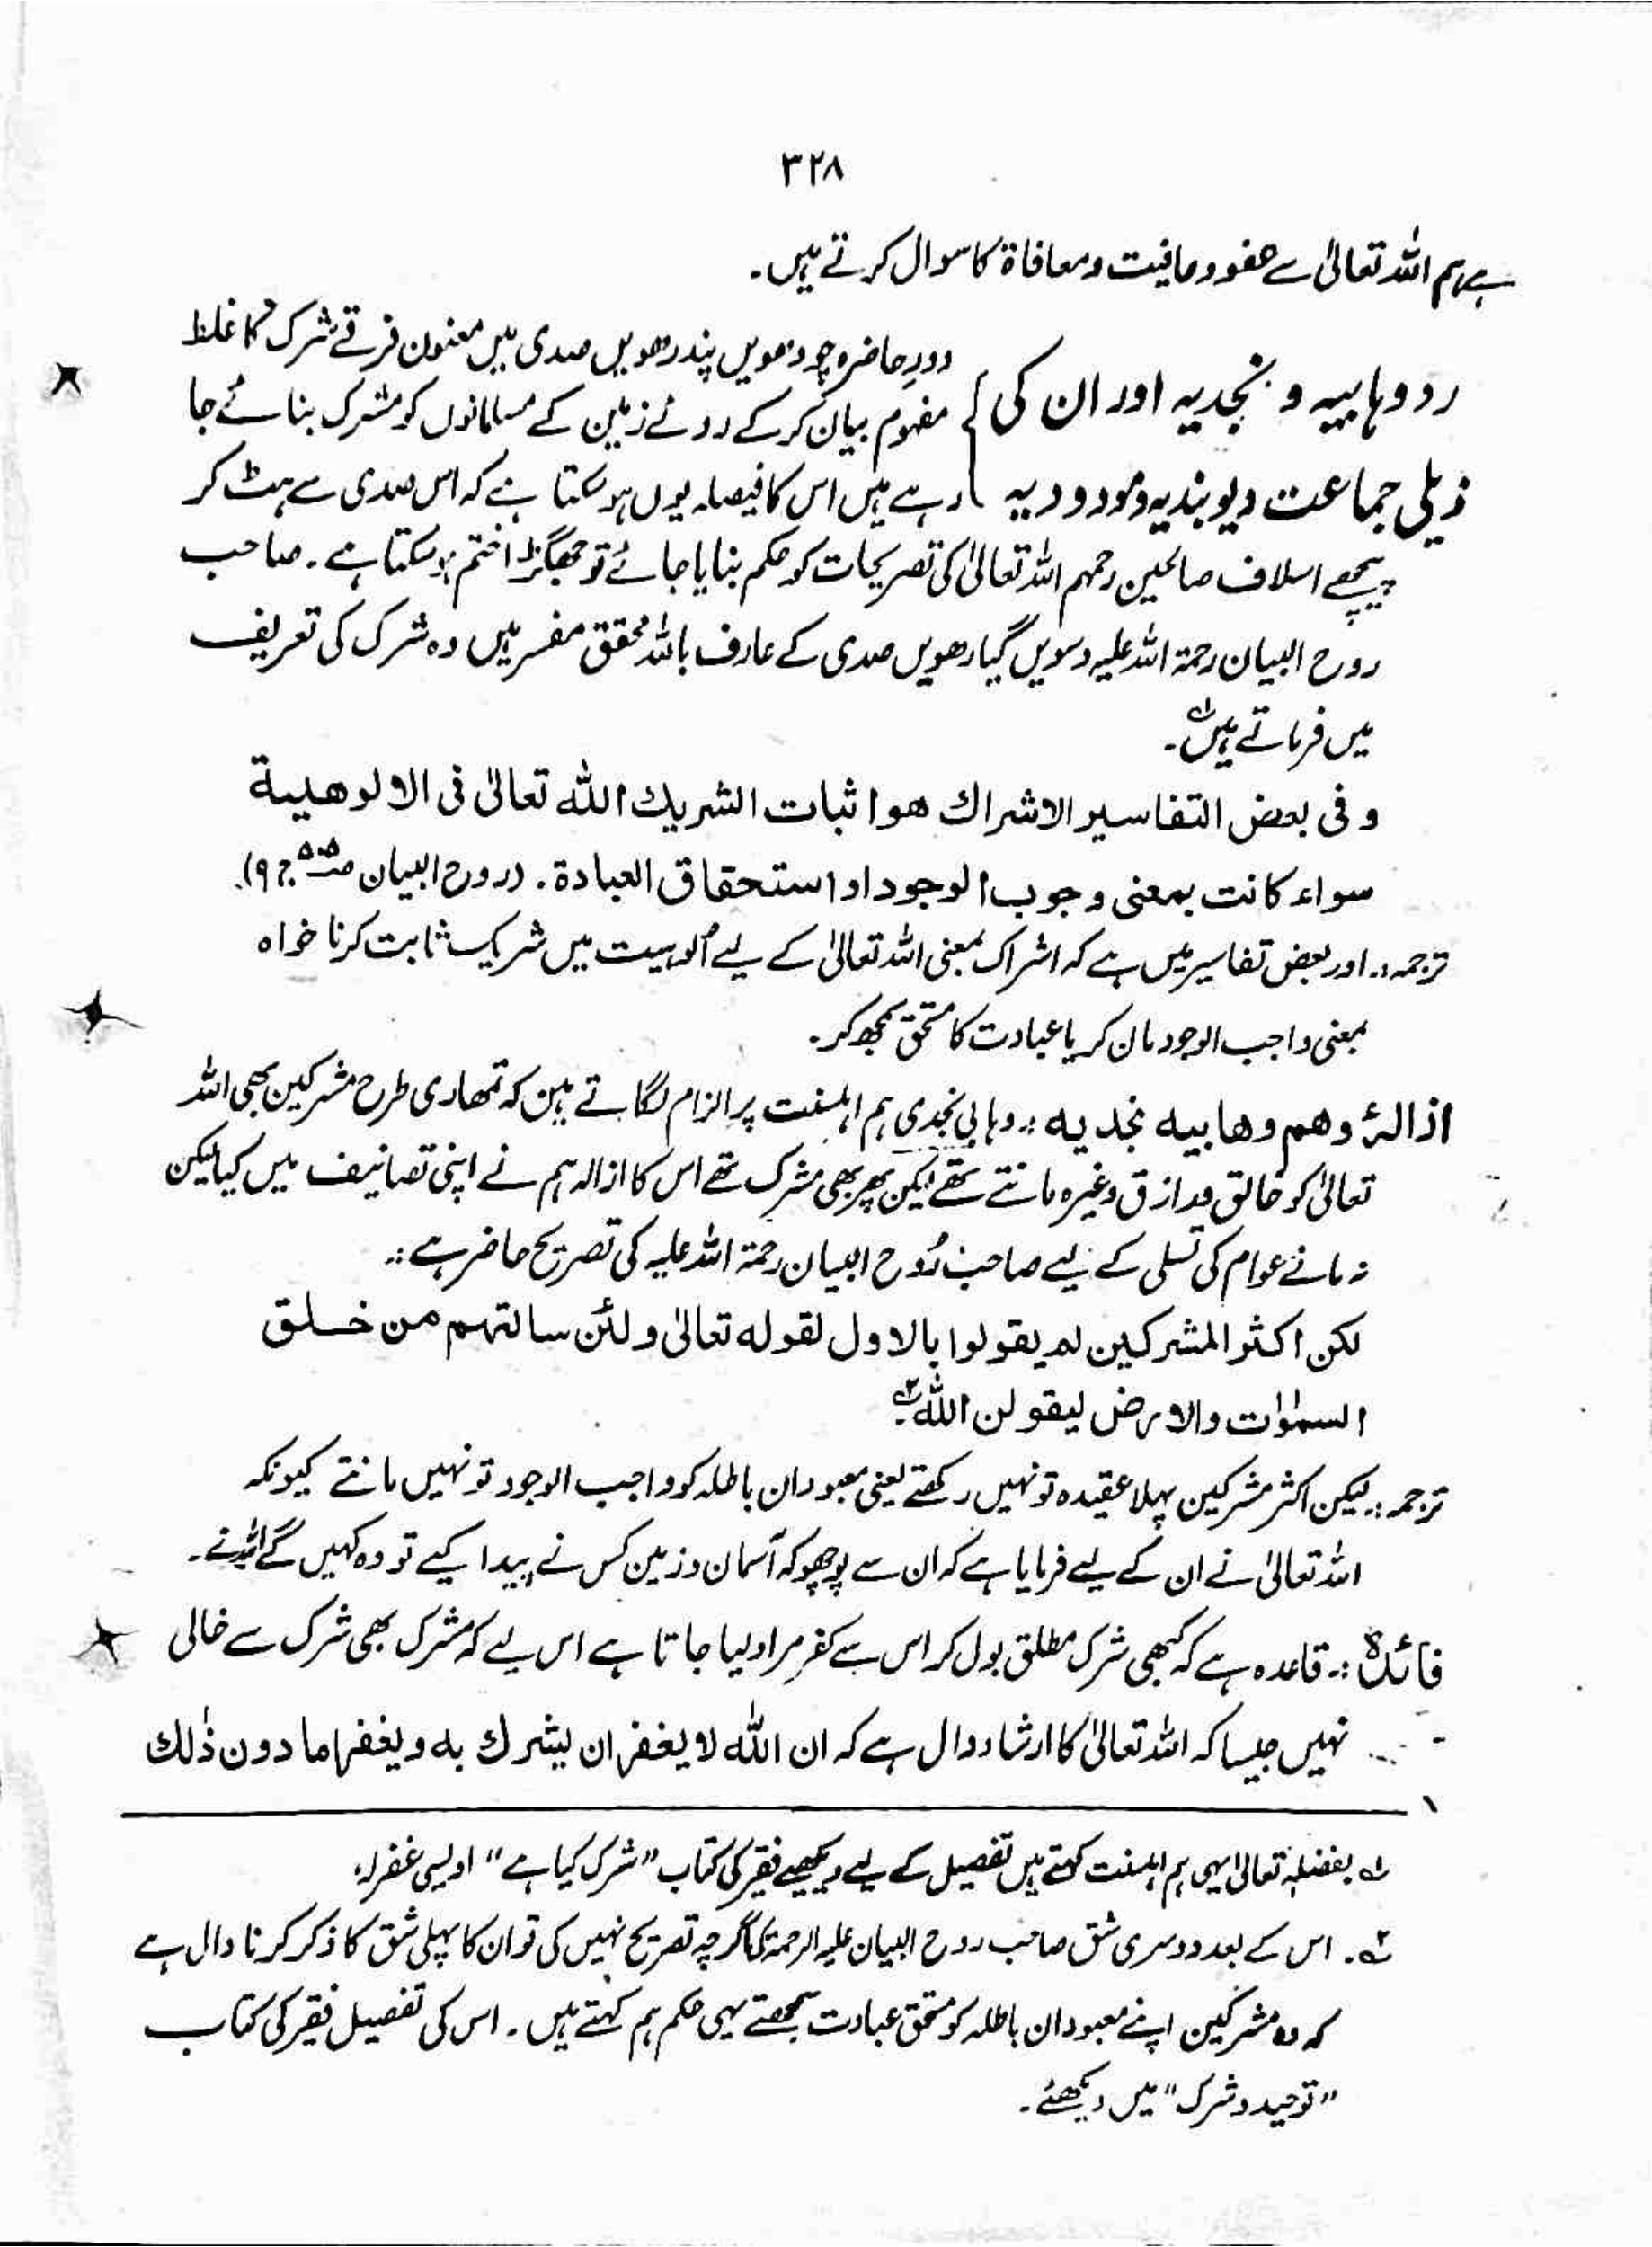 ۳۲۸
ہے ہم اللہ تعالیٰ سے عفو و عافیت و معافاۃ کا سوال کرتے ہیں۔
رد وہابیہ و نجدیہ اور ان کی
ذیلی جماعت دیوبندیہ و مودودیہ
دورِ حاضرہ چودھویں پندرھویں صدی میں معنون فرقے شرک کا غلط
مفہوم بیان کرکے روئے زمین کے مسلمانوں کو مشرک بنائے جا
رہے ہیں اس کا فیصلہ یوں ہو سکتا ہے کہ اس صدی سے ہٹ کر
پیچھے اسلاف صالحین رحمہم اللہ تعالیٰ کی تصریحات کو حکم بنایا جائے تو جھگڑا ختم ہو سکتا ہے۔ صاحب
روح البیان رحمۃ اللہ علیہ دسویں گیارھویں صدی کے عارف باللہ محقق مفسر ہیں وہ شرک کی تعریف
میں فرماتے ہیں ؎۱۔
و فی بعض التفاسیر الاشراك هو اثبات الشریك اللّٰه تعالیٰ فی الالوهیة
سواء كانت بمعنی وجوب الوجود او استحقاق العبادة۔ (روح البیان ص ۵۵ ج ۹)۔
ترجمہ:۔ اور بعض تفاسیر میں ہے کہ اشراک بمعنی اللہ تعالیٰ کے لیے اُلوہیت میں شریک ثابت کرنا خواہ
بمعنی واجب الوجود مان کر یا عبادت کا مستحق سمجھ کر۔
ازالۂ وھم وھابیہ نجدیہ :۔ وہابی نجدی ہم اہلسنت پر الزام لگاتے ہین کہ تمھاری طرح مشرکین بھی اللہ
تعالیٰ کو خالق و رازق وغیرہ مانتے تھے لیکن پھر بھی مشرک تھے اس کا ازالہ ہم نے اپنی تصانیف میں کیا لیکن
نہ مانے عوام کی تسلی کے لیے صاحب رُوح البیان رحمۃ اللہ علیہ کی تصریح حاضر ہے :۔
لكن اكثر المشركین لم یقولوا بالاول لقوله تعالیٰ و لئن سالتهم من خلق
السمٰوٰت والارض لیقولن اللّٰه ؎۲۔
ترجمہ :۔ لیکن اکثر مشرکین پہلا عقیدہ تو نہیں رکھتے یعنی معبودان باطلہ کو واجب الوجود تو نہیں مانتے کیونکہ
اللہ تعالیٰ نے ان کے لیے فرمایا ہے کہ ان سے پوچھو کہ آسمان و زمین کس نے پیدا کیے تو وہ کہیں گے اللہ نے۔
فائدہ :۔ قاعدہ ہے کہ کبھی شرک مطلق بول کر اس سے کفر مراد لیا جاتا ہے اس لیے کہ مشرک بھی شرک سے خالی
نہیں جیسا کہ اللہ تعالیٰ کا ارشاد دال ہے کہ ان اللّٰه لا یغفر ان یشرك به و یغفر ما دون ذٰلك
؎۱ بفضلہٖ تعالیٰ یہی ہم اہلسنت کہتے ہیں تفصیل کے لیے دیکھیے فقیر کی کتاب "شرک کیا ہے" اویسی غفرلہ،
؎۲۔ اس کے بعد دوسری شق صاحب روح البیان علیہ الرحمۃ کی اگرچہ تصریح نہیں کی تو ان کا پہلی شق کا ذکر کرنا دال ہے
کہ وہ مشرکین اپنے معبودان باطلہ کو مستحق عبادت سمجھتے یہی حکم ہم کہتے ہیں۔ اس کی تفصیل فقیر کی کتاب
"توحید و شرک" میں دیکھئے۔